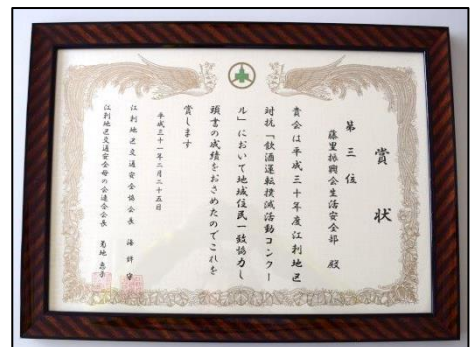 賞状
第三位
藤里振興会生活安全部 殿
貴会は平成三十年度江刺地区
対抗「飲酒運転撲滅活動コンクー
ル」において地域住民一致協力し
頭書の成績をおさめたのでこれを
賞します
平成三十一年二月二十五日
江刺地区交通安全協会長 海鋒 守
江刺地区交通安全母の会連合会長 菊地